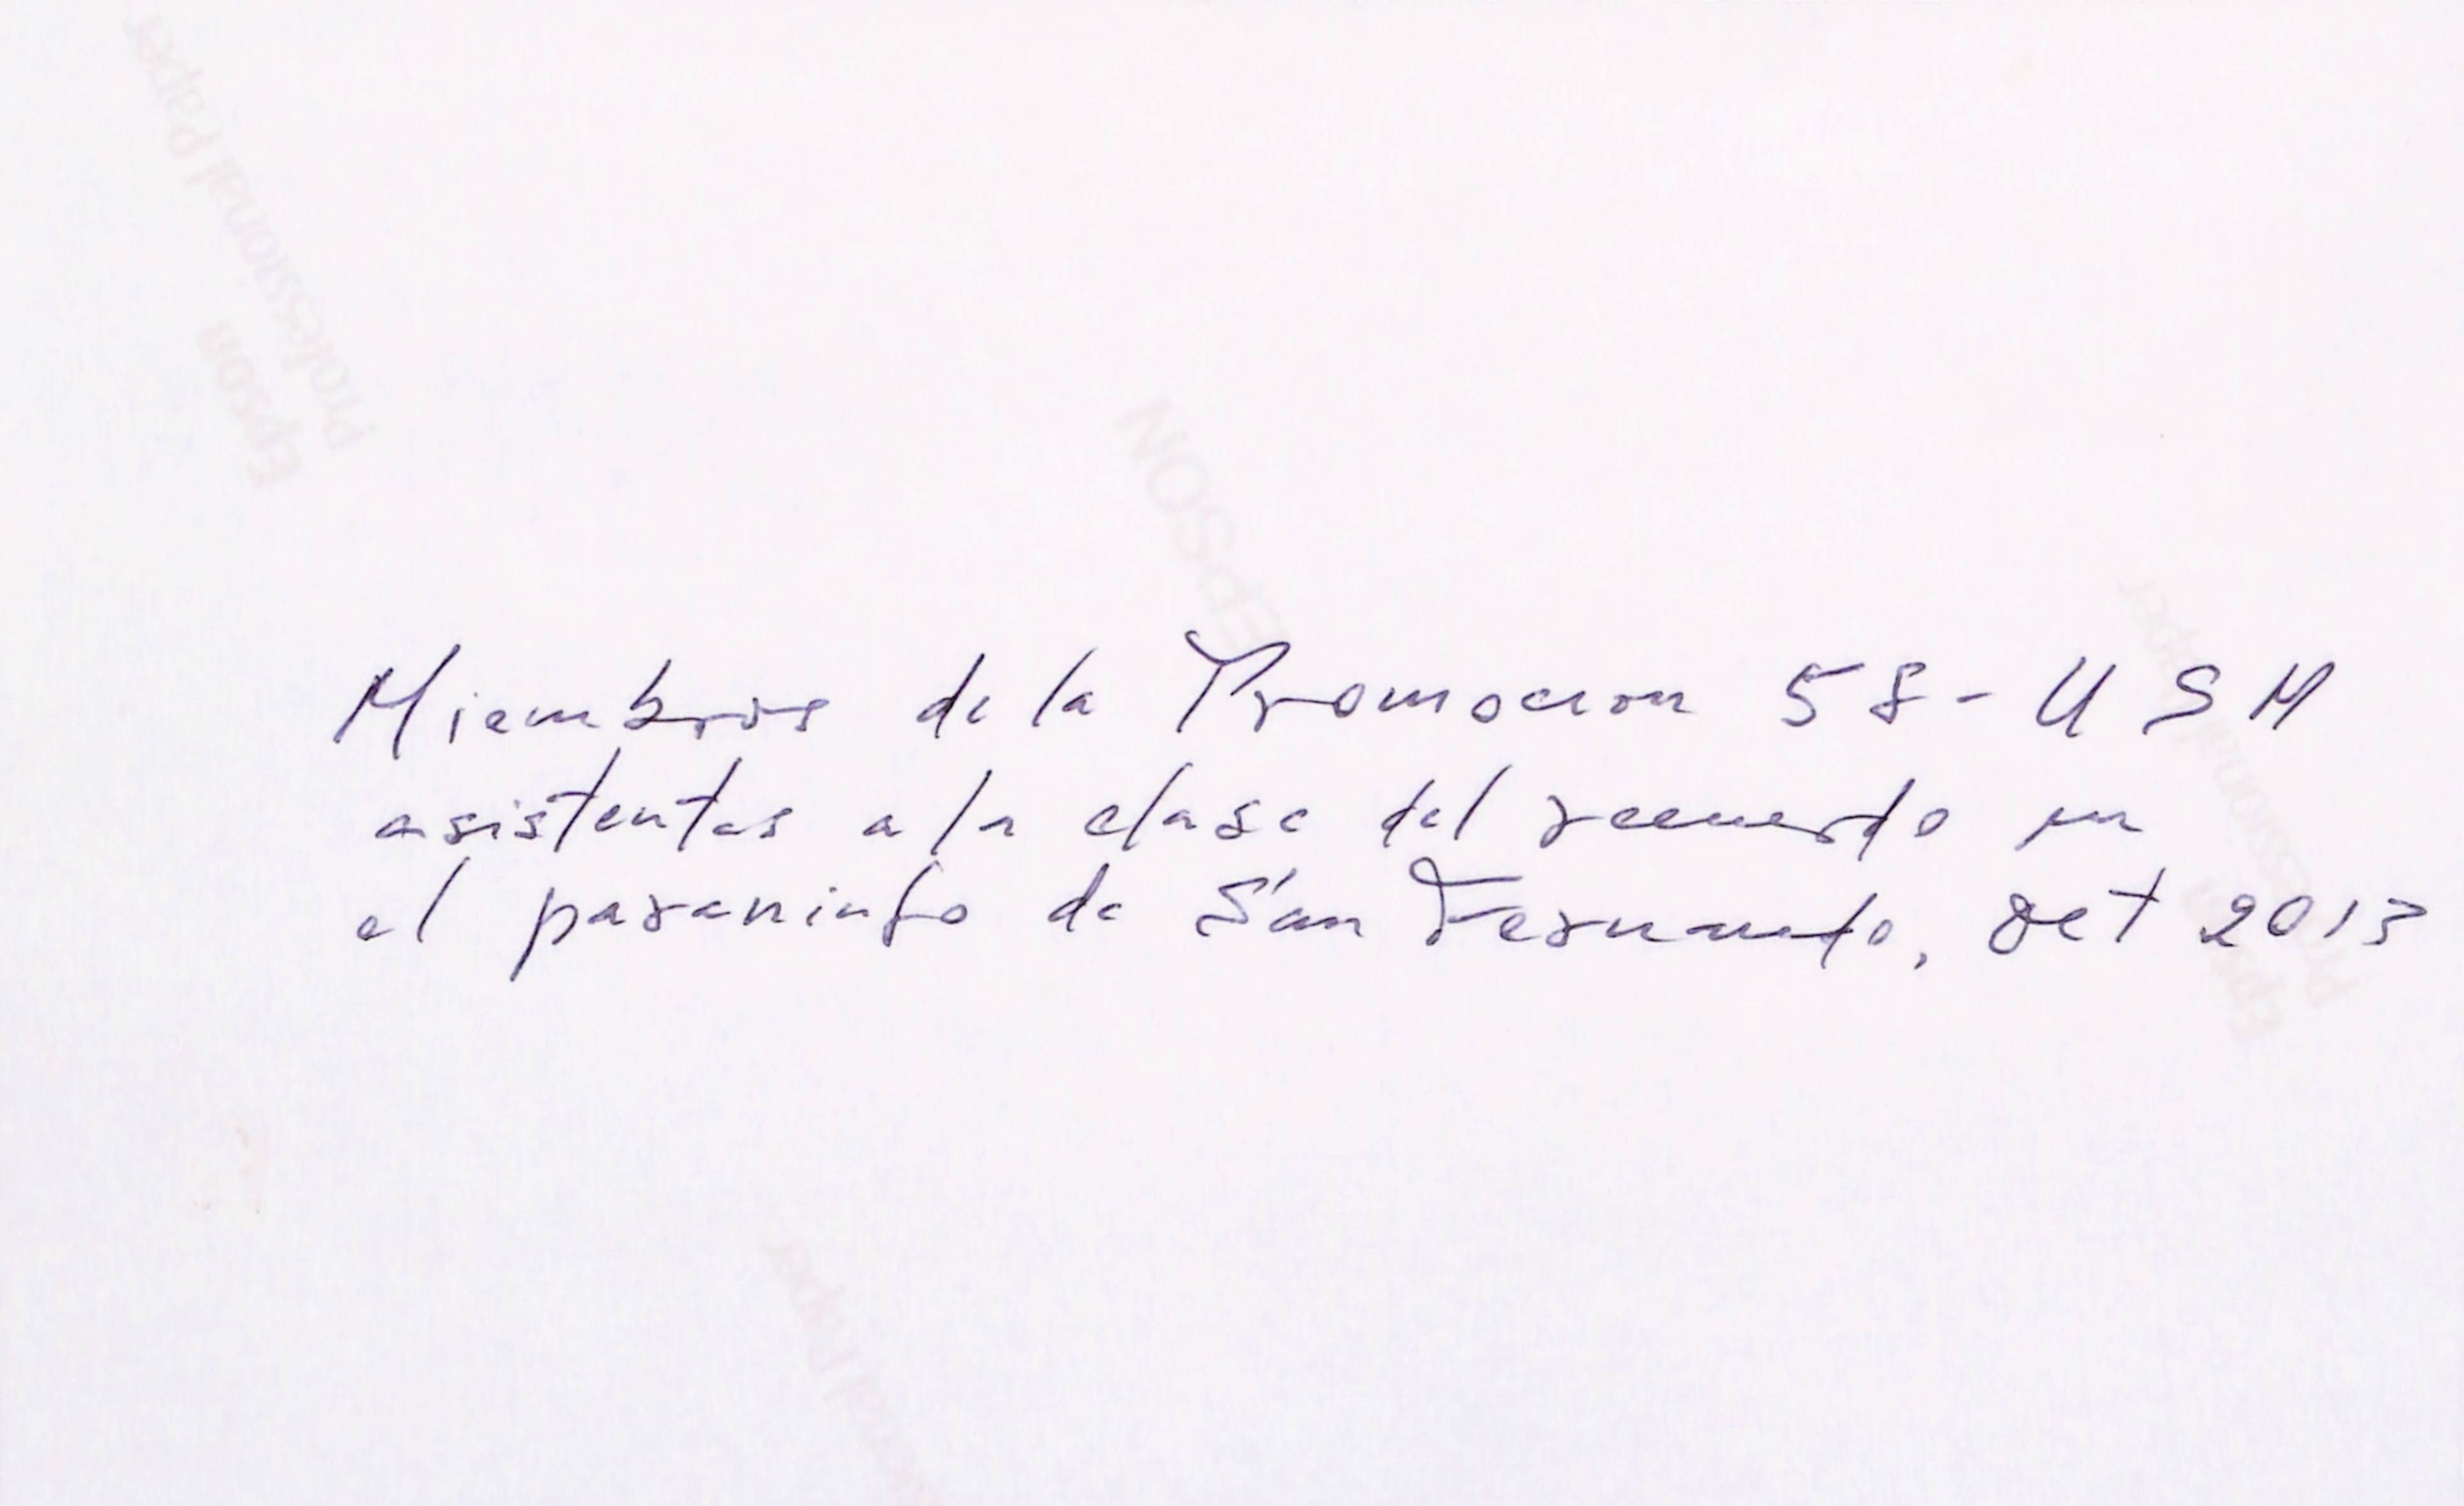 Miembros de la Promocion 58 - USM
asistentes a la clase del recuerdo en
el paraninfo de San Fernando, Oct 2013
Epson
Professional Paper
EPSON
Epson
Professional Paper
Professional Paper